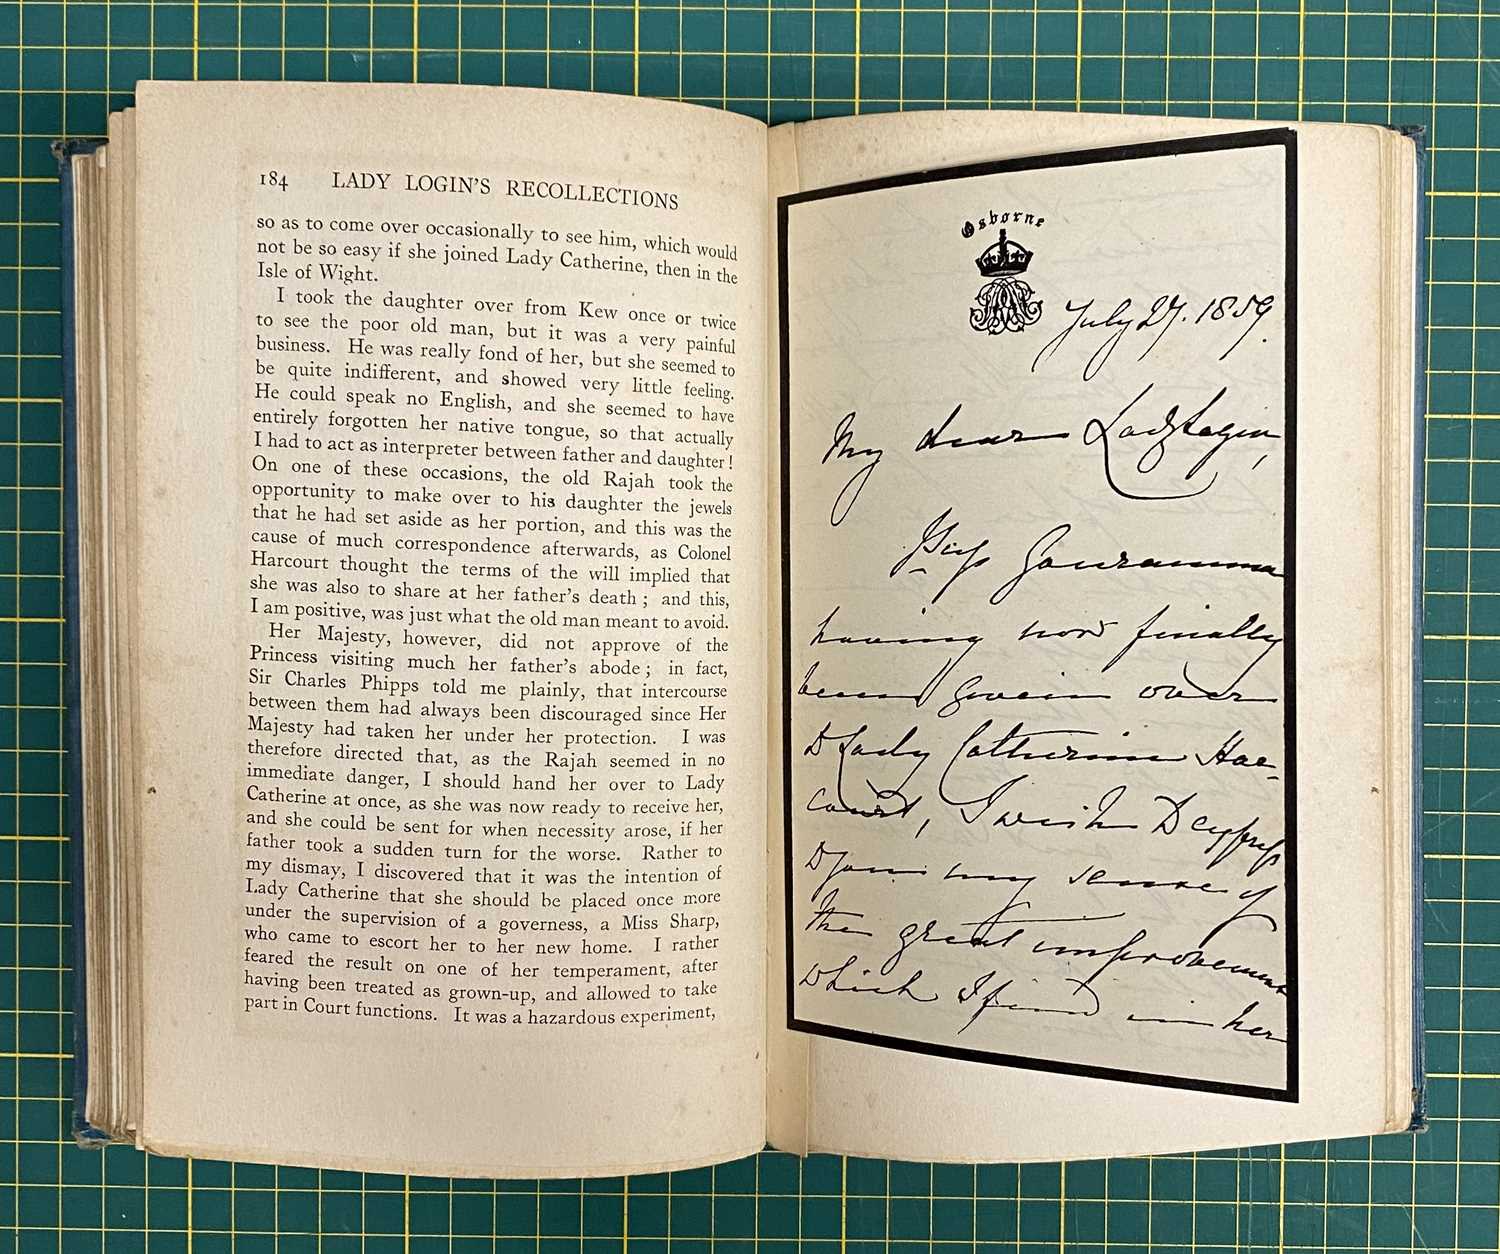 184 LADY LOGIN'S RECOLLECTIONS
so as to come over occasionally to see him, which would
not be so easy if she joined Lady Catherine, then in the
Isle of Wight.
I took the daughter over from Kew once or twice
to see the poor old man, but it was a very painful
business. He was really fond of her, but she seemed to
be quite indifferent, and showed very little feeling.
He could speak no English, and she seemed to have
entirely forgotten her native tongue, so that actually
I had to act as interpreter between father and daughter!
On one of these occasions, the old Rajah took the
opportunity to make over to his daughter the jewels
that he had set aside as her portion, and this was the
cause of much correspondence afterwards, as Colonel
Harcourt thought the terms of the will implied that
she was also to share at her father's death; and this,
I am positive, was just what the old man meant to avoid.
Her Majesty, however, did not approve of the
Princess visiting much her father's abode; in fact,
Sir Charles Phipps told me plainly, that intercourse
between them had always been discouraged since Her
Majesty had taken her under her protection. I was
therefore directed that, as the Rajah seemed in no
immediate danger, I should hand her over to Lady
Catherine at once, as she was now ready to receive her,
and she could be sent for when necessity arose, if her
father took a sudden turn for the worse. Rather to
my dismay, I discovered that it was the intention of
Lady Catherine that she should be placed once more
under the supervision of a governess, a Miss Sharp,
who came to escort her to her new home. I rather
feared the result on one of her temperament, after
having been treated as grown-up, and allowed to take
part in Court functions. It was a hazardous experiment,
Osborne
July 27. 1859.
My dear Lady Login,
Pss Gouramma
having now finally
been given over
to Lady Catherine Har-
court, I wish to express
to you my sense of
the great improvement
which I find in her